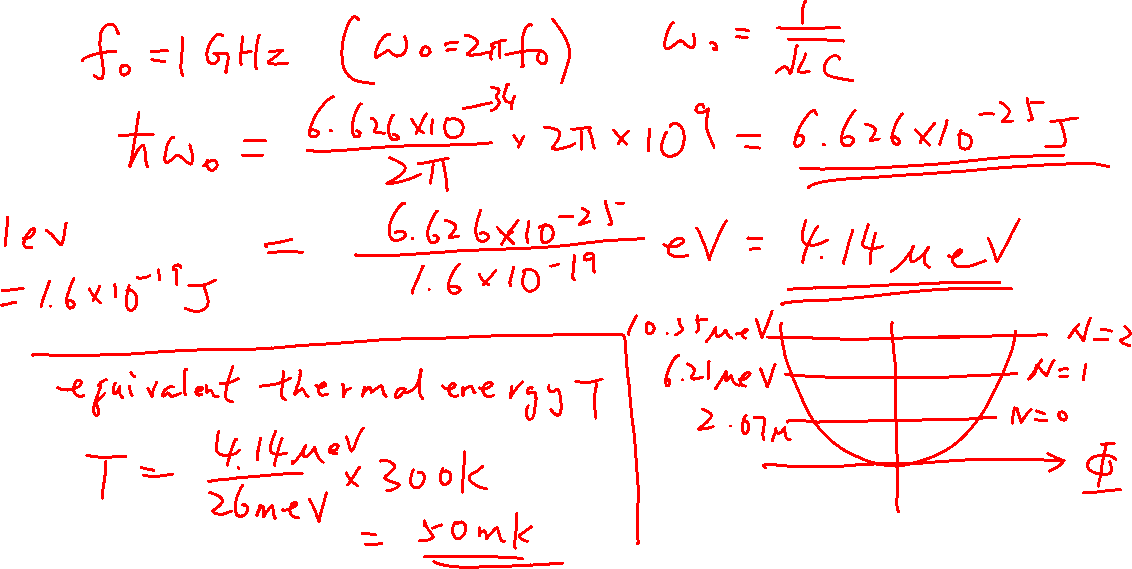 f₀ = 1 GHz (ω₀ = 2πf₀) ω₀ = 1/√LC
ħω₀ = 6.626×10⁻³⁴/2π × 2π × 10⁹ = 6.626×10⁻²⁵ J
1eV = 1.6×10⁻¹⁹ J
= 6.626×10⁻²⁵/1.6×10⁻¹⁹ eV = 4.14 μeV
equivalent thermal energy T
T = 4.14 μeV/26meV × 300K
= 50mK
10.35μeV N=2
6.21μeV N=1
2.07μ N=0
Φ